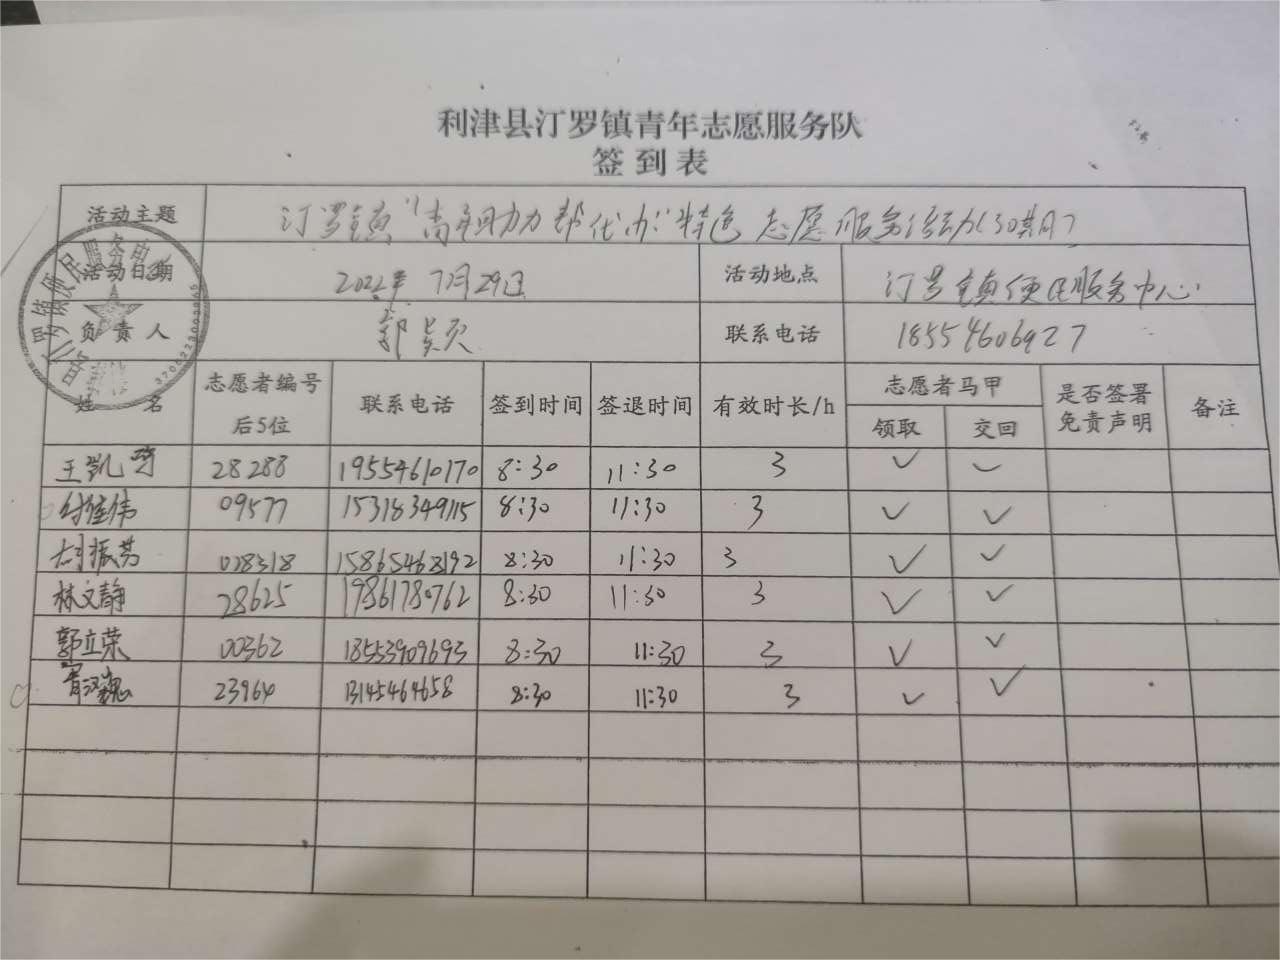 利津县汀罗镇青年志愿服务队
签到表
活动主题 汀罗镇"青 助力 帮代办"特色志愿服务活动(30期)
活动日期 2022年7月29日 活动地点 汀罗镇便民服务中心
负责人 郭 联系电话 18554606927
姓名 志愿者编号后5位 联系电话 签到时间 签退时间 有效时长/h 志愿者马甲 领取 交回 是否签署免责声明 备注
王凯 28288 19554610170 8:30 11:30 3 ✓ ✓
伟 09577 15318349115 8:30 11:30 3 ✓ ✓
振芳 028318 15865468192 8:30 11:30 3 ✓ ✓
林文静 28625 19861780762 8:30 11:30 3 ✓ ✓
郭立荣 00362 18553909693 8:30 11:30 3 ✓ ✓
23964 13145464658 8:30 11:30 3 ✓ ✓